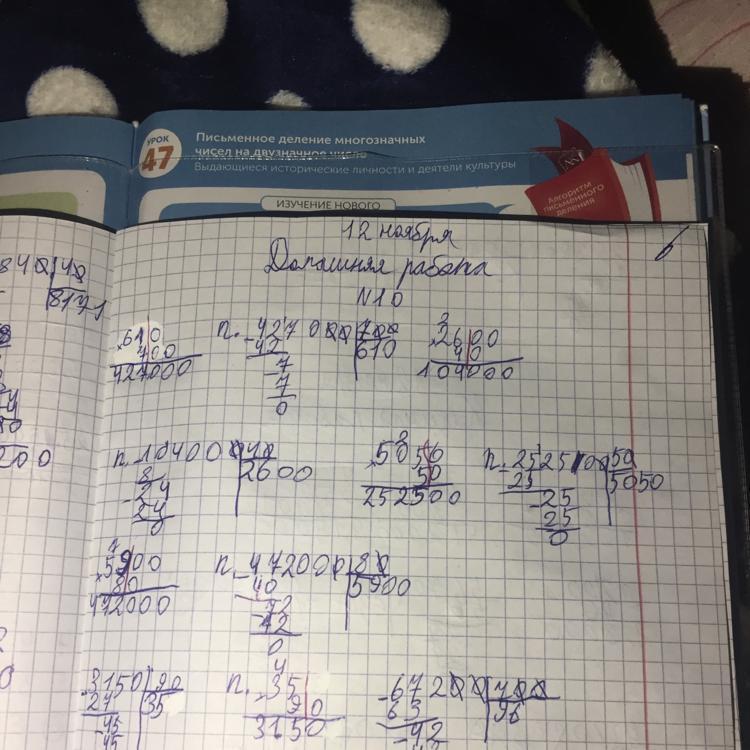 УРОК
47
Письменное деление многозначных
чисел на двузначное число
Выдающиеся исторические личности и деятели культуры
ИЗУЧЕНИЕ НОВОГО
Алгоритм
письменного
деления
12 ноября
б
Домашняя работа
N10
×610
700
427000
п. -427000 | 700
42 | 610
-7
7
0
3
×2600
40
104000
п. 104000 | 40
8 | 2600
-24
24
0
2
×5050
50
252500
п. -252500 | 50
25 | 5050
-25
25
0
7
×5900
80
472000
п. -472000 | 80
40 | 5900
-72
72
0
-3150 | 90
27 | 35
-45
45
п. 4
×35
90
3150
-67200 | 700
63 | 96
-42